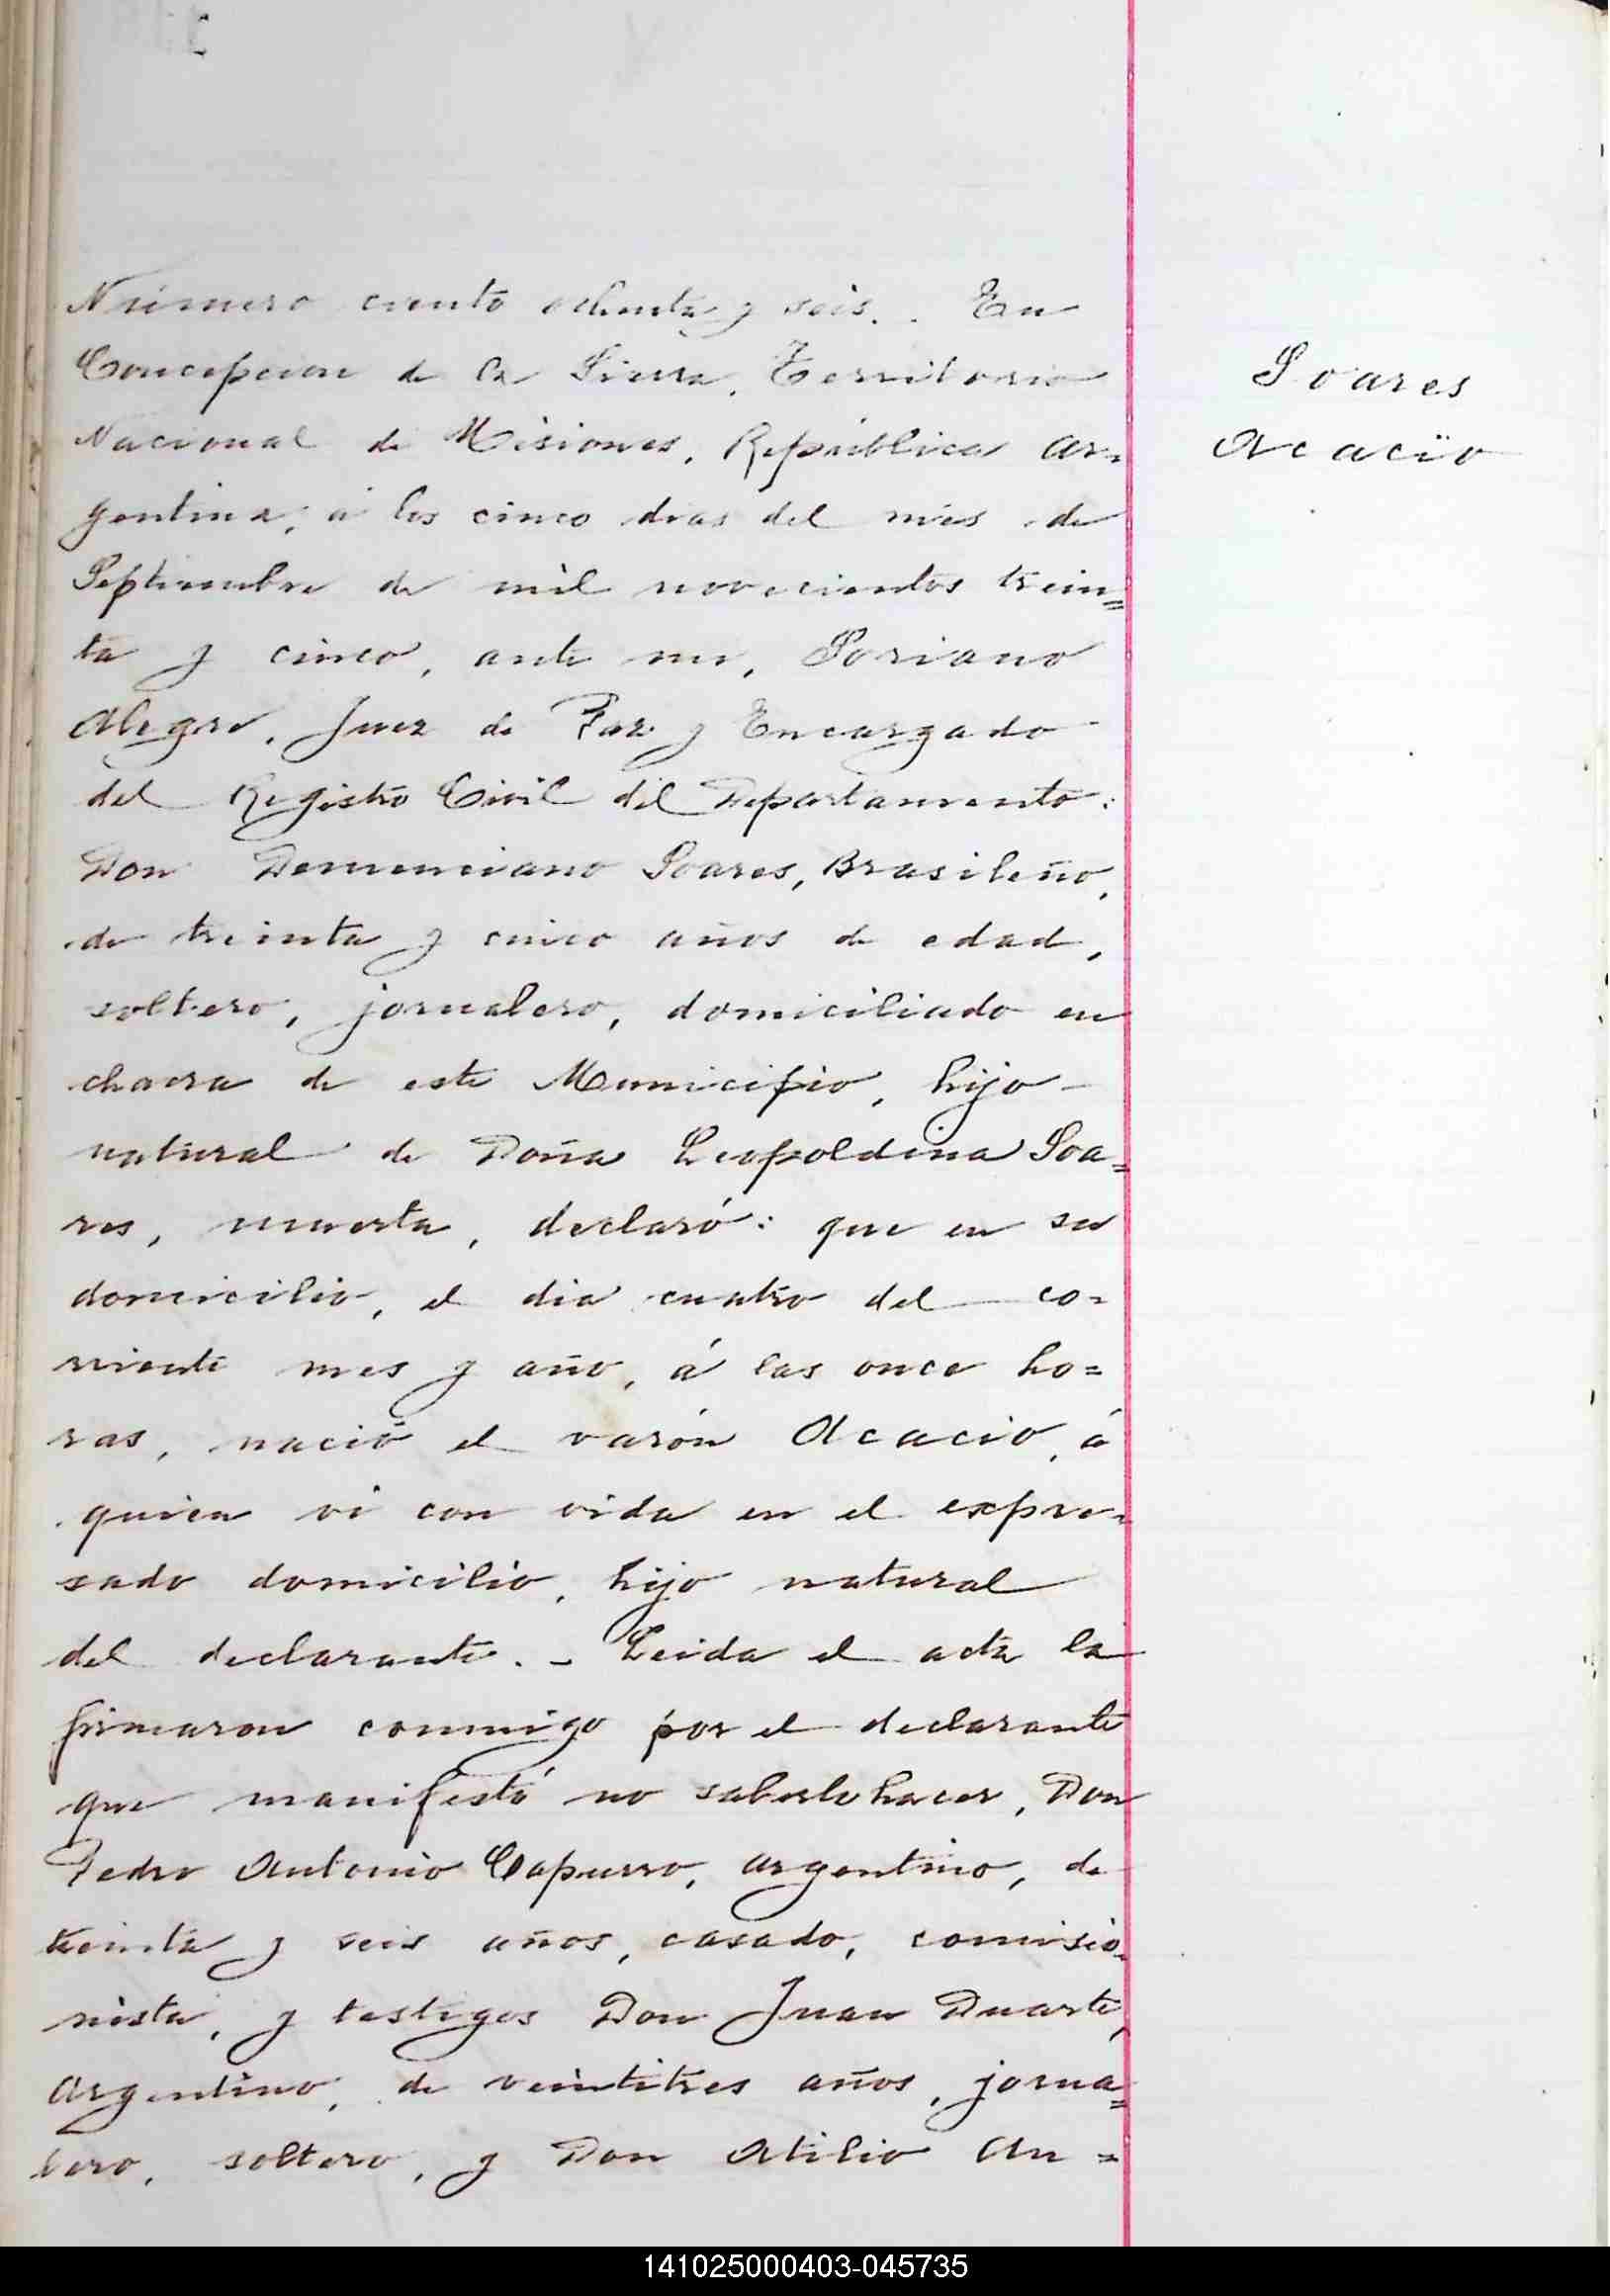 Número ciento ochenta y seis. . En
Concepcion de la Sierra, Territorio
Nacional de Misiones, República Ar=
gentina, á los cinco dias del mes de
Septiembre de mil novecientos trein=
ta y cinco, ante mi, Soriano
Alegre, Juez de Paz y Encargado
del Registro Civil del Departamento:
Don Demenciano Soares, Brasileño,
de treinta y cinco años de edad,
soltero, jornalero, domiciliado en
chacra de este Municipio, hijo
natural de Doña Leopoldina Soa=
res, muerta, declaró: que en su
domicilio, el dia cuatro del co=
rriente mes y año, á las once ho=
ras, nació el varón Acacio, á
quien vi con vida en el expre=
sado domicilio, hijo natural
del declarante. - Leida el acta la
firmaron conmigo por el declarante
que manifestó no saberlo hacer, Don
Pedro Antonio Capurro, Argentino, de
treinta y seis años, casado, comisio=
nista, y testigos Don Juan Duarte,
Argentino, de veintitres años, jorna=
lero, soltero, y Don Atilio An=
Soares
Acacio
141025000403-045735